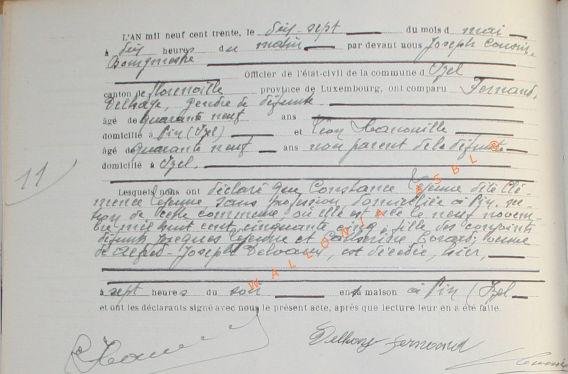 L'AN mil neuf cent trente, le dix-sept du mois de mai
à dix heures du matin par devant nous Joseph
Bourgmestre
Officier de l'état-civil de la commune d'Izel
canton de Florenville province de Luxembourg, ont comparu Fernand
gendre de la défunte
âgé de quarante neuf ans
domicilié à Pin (Izel) et Léon
âgé de quarante neuf ans non parent de la défunte
domicilié à Izel,
11
Lesquels nous ont déclaré que Constance Lejeune dite Clé-
mence Lejeune sans profession domiciliée à Pin, sec-
tion de cette commune, où elle est née le neuf novem-
bre mil huit cent cinquante cinq, fille des conjoints
défunts Jacques Lejeune et Catherine veuve
de Alfred-Joseph est décédée, hier,
à sept heures du soir en sa maison à Pin (Izel)
et ont les déclarants signé avec nous le présent acte, après que lecture leur en a été faite.
Fernand
WALLONIA ASBL ©